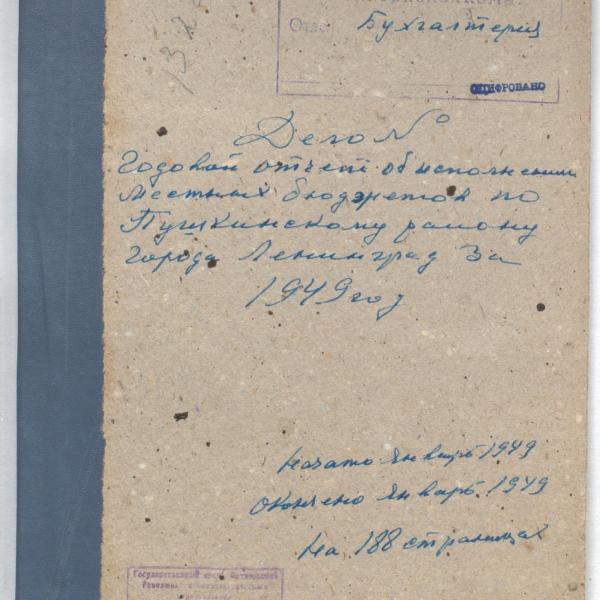 Отдел Бухгалтерия
ОЦИФРОВАНО
Дело №
Годовой отчет об исполнении
местных бюджетов по
Пушкинскому району
города Ленинград за
1949 год
Начато январь 1949
Окончено январь 1949
На 188 страницах
Государственный архив Октябрьской